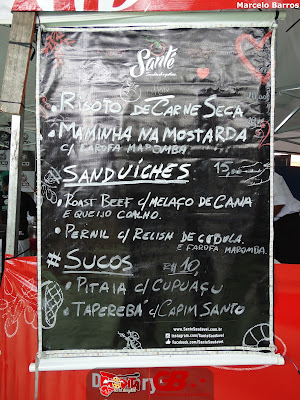 Marcelo Barros
Santé
• RISOTO DE CARNE SECA
• MAMINHA NA MOSTARDA
C/ FAROFA MAROMBA.
SANDUÍCHES 15,00
• ROAST BEEF C/ MELAÇO DE CANA
E QUEIJO COALHO.
• PERNIL C/ RELISH DE CEBOLA.
E FAROFA MAROMBA.
# SUCOS R$10,
• PITAIA C/ CUPUAÇU
• TAPEREBÁ C/ CAPIM SANTO
www.SanteSaudavel.com.br
instagram.com/SanteSaudavel
facebook.com/SanteSaudavel